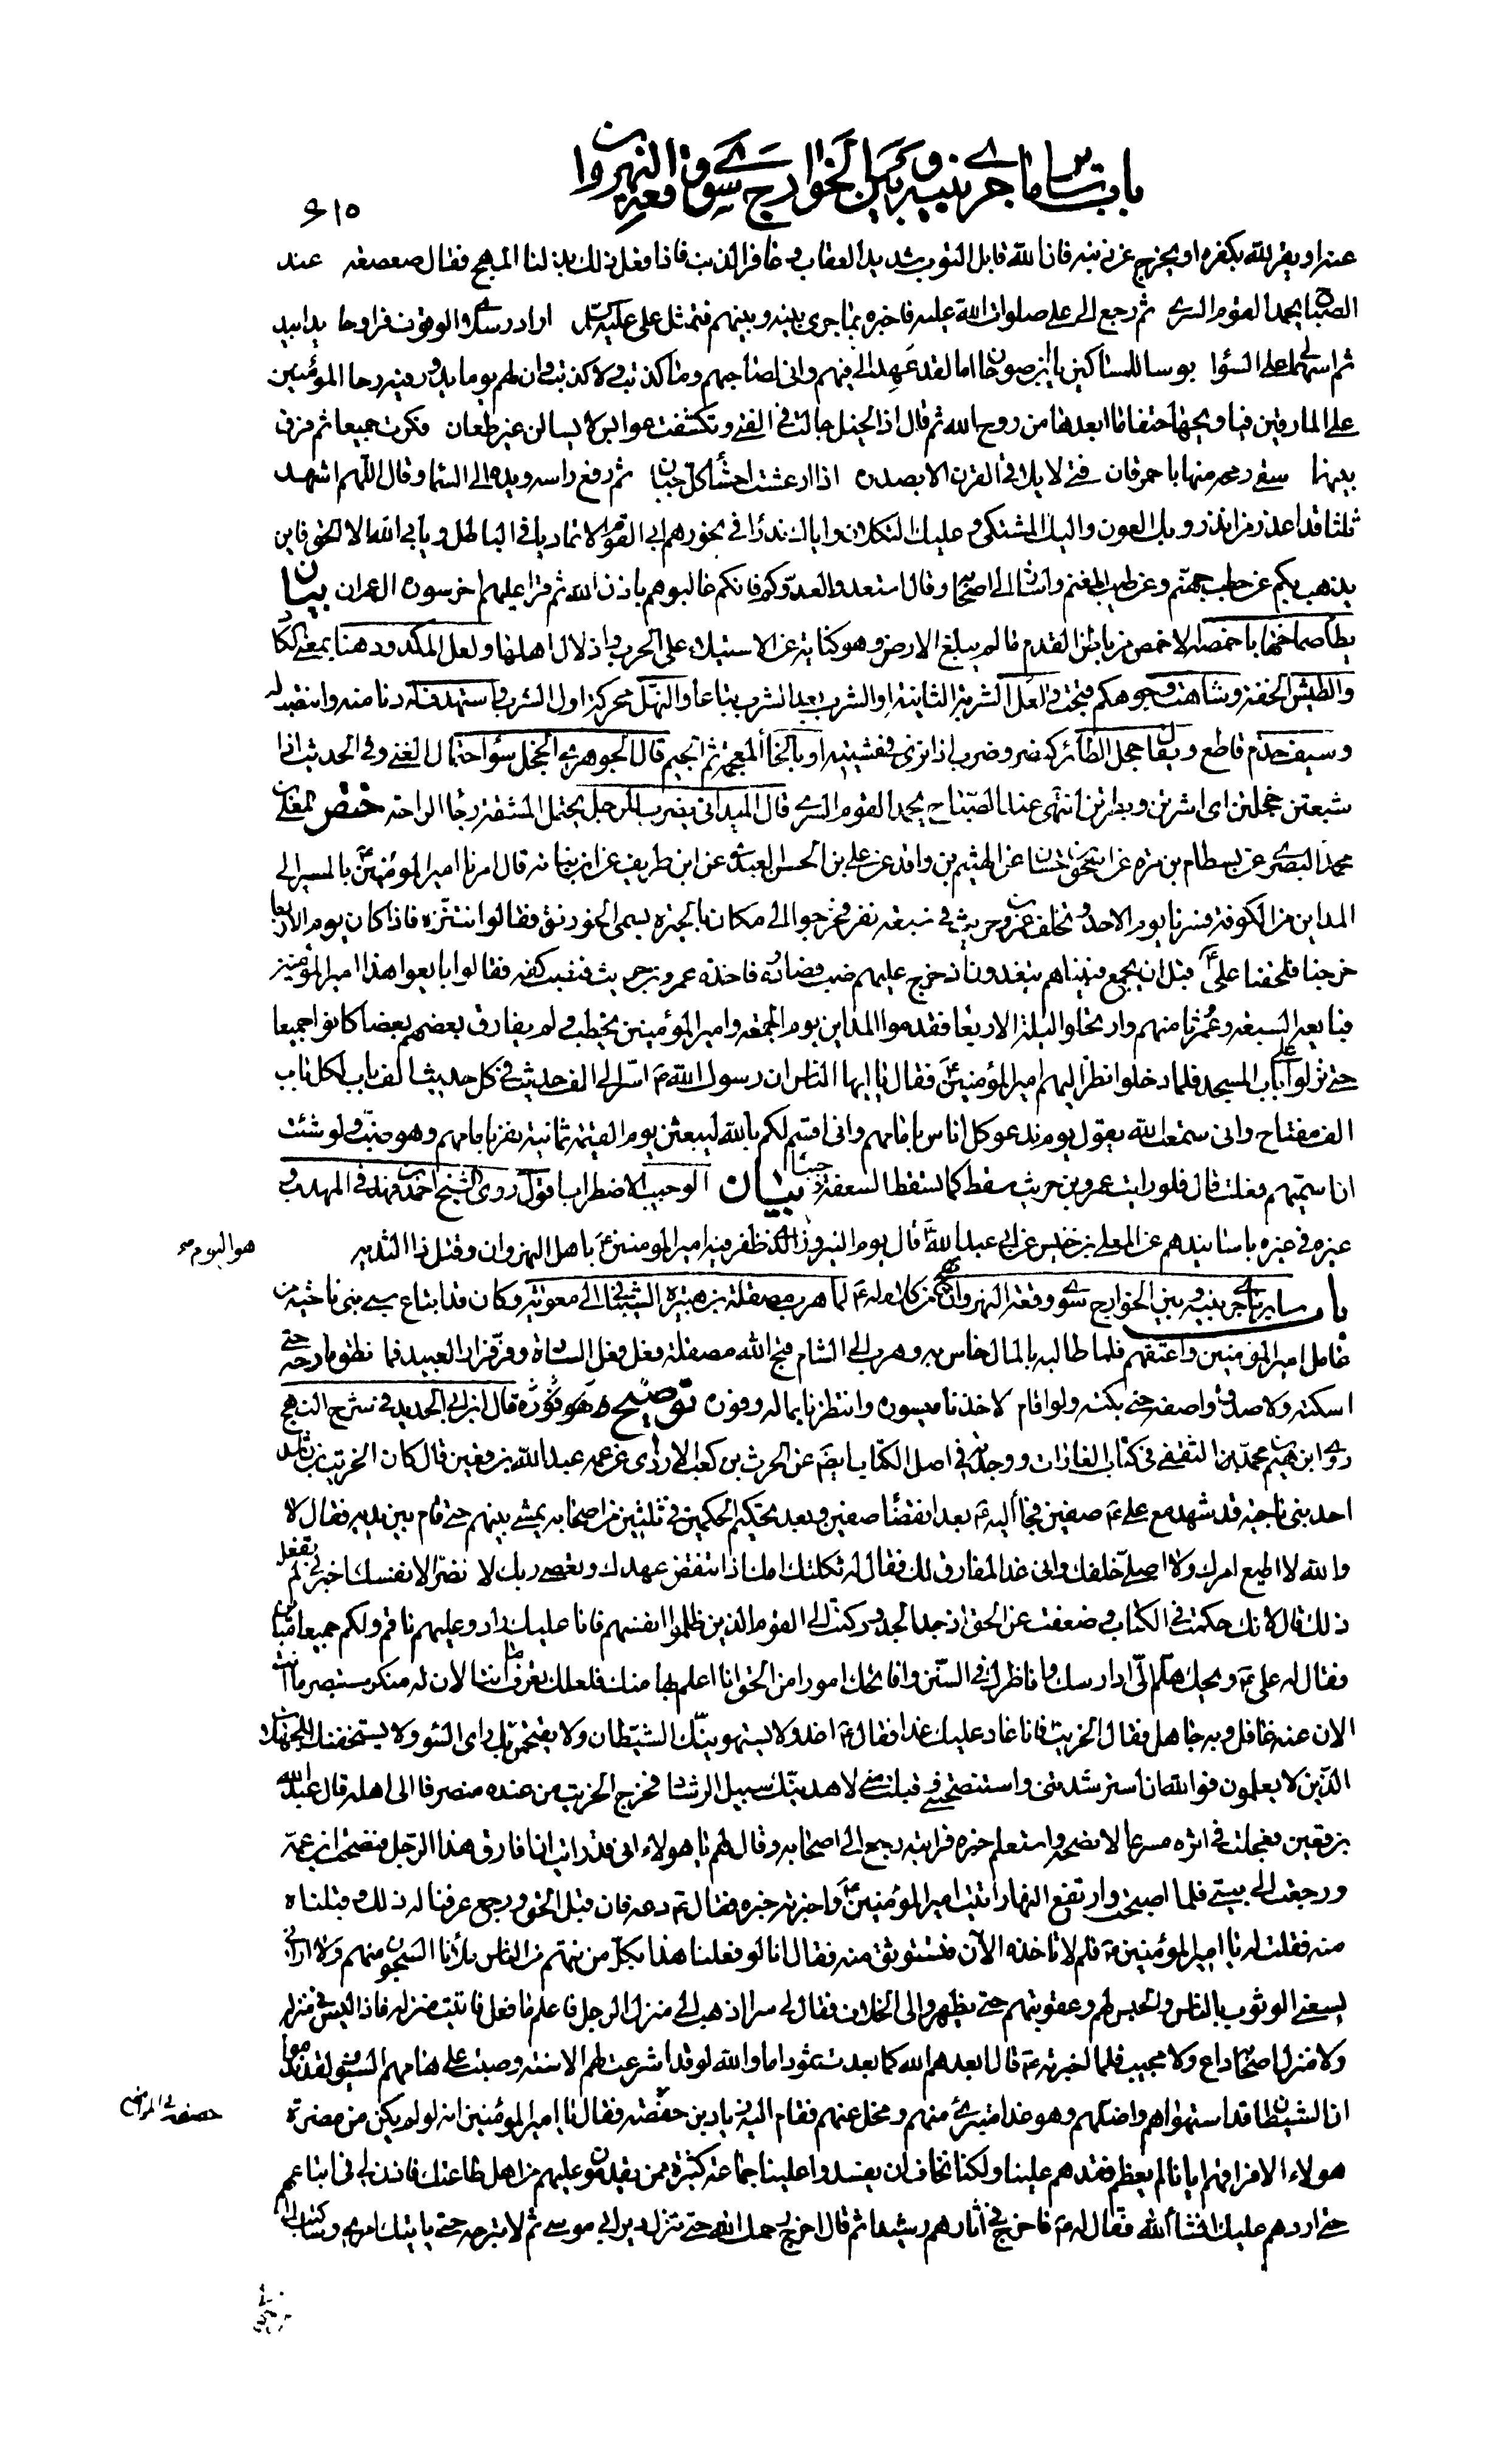 باب سائر ما جرى بينه وبين الخوارج سوى وقعة النهروان
٦١٥
عنه او يقر لله بكفره او يخرج عن ذنبه فان الله قابل التوب شديد العقاب وغافر الذنب فاذا فعل ذلك بذلنا المهج فقال صعصعة عند
الصباح يحمد القوم السرى ثم رجع الى علي صلوات الله عليه فاخبره بما جرى بينه وبينهم فتمثل علي عليه السلم اراد رسولاى الوقوف فراوحا يدا بيد
ثم اسهما لى على السوا بوسا للمساكين يا ابن صوحان اما لقد عهد الى فيهم وانى لصاحبهم وما كذبت ولا كذبت وان لهم يوما يدور فيه رحا المؤمنين
على المارقين فيا ويحها حتفا ما ابعدها من روح الله ثم قال اذا الخيل جالت في الفتى وتكشفت عوابس لا يسالن غير طعان فكرت جميعا ثم فرق
بينها سقى رمحه منها باحمر قان فتى لا يلاقي القرن الا بصدره اذا ارعشت احشاء كل جبان ثم رفع راسه ويده الى السماء وقال اللهم اشهد
ثلثا قد اعذر من انذر وبك العون واليك المشتكى وعليك التكلان واياك ندرأ في نحورهم ابى القوم الا تماديا في الباطل ويابى الله الا الحق فاين
يذهب بكم عن حطب جهنم وعن طيب المغنم واشار الى اصحابه وقال استعدوا لعدوكم فانكم غالبوهم باذن الله ثم قرا عليهم اخر سورة ال عمران بيان
يطأ صماخها باخمصه الاخمص من باطن القدم ما لم يبلغ الارض وهو كناية عن الاستيلاء على الحرب واذلال اهلها ولعل المكدود هنا بمعنى الكاد
والطيش الخفة وشاهت وجوهكم قبحت والعل الشربة الثانية او الشرب بعد الشرب تباعا والنهل محركة اول الشرب واستهدف له دنا منه وانتصب له
وسيف حذم قاطع ويقال حجل الطائر كنصر وضرب اذا نزى في مشيته او بالخاء المعجمة ثم الجيم قال الجوهرى الخجل سوء احتمال الغنى وفي الحديث اذا
شبعتن خجلتن اى اشرتن وبطرتن انتهى عند الصباح يحمد القوم السرى قال الميدانى يضرب للرجل يحتمل المشقة رجاء الراحة ختص المعلى بن
محمد البصرى عن بسطام بن مرة عن اسحق بن حسان عن الهيثم بن واقد عن علي بن الحسن العبدى عن ابن طريف عن ابن نباته قال امرنا امير المؤمنين ع بالمسير الى
المداين من الكوفة فسرنا يوم الاحد وتخلف عمرو بن حريث في سبعة نفر فخرجوا الى مكان بالحيرة يسمى الخورنق فقالوا نتنزه فاذا كان يوم الاربعا
خرجنا فلحقنا عليا ع قبل ان يجمع فبيناهم يتغدون اذ خرج عليهم ضب فصادوه فاخذه عمرو بن حريث فنصب كفه فقالوا بايعوا هذا امير المؤمنين
فبايعه السبعة وعمرو ثامنهم وارتحلوا ليلة الاربعا فقدموا المداين يوم الجمعة وامير المؤمنين يخطب ولم يفارق بعضهم بعضا كانوا جميعا
حتى نزلوا على باب المسجد فلما دخلوا نظر اليهم امير المؤمنين ع فقال يا ايها الناس ان رسول الله ص اسر الى الف حديث في كل حديث الف باب لكل باب
الف مفتاح وانى سمعت الله يقول يوم ندعو كل اناس بامامهم وانى اقسم لكم بالله ليبعثن يوم القيمة ثمانية نفر بامامهم وهو ضب ولو شئت
ان اسميهم فعلت قال فلو رايت عمرو بن حريث سقط كما تسقط السعفة وجيبا بيان الوجيب الاضطراب اقول روى الشيخ احمد بن فهد في المهذب و
غيره في غيره باسانيدهم عن المعلى بن خنيس عن ابى عبد الله ع قال يوم النيروز الذى ظفر فيه امير المومنين ع باهل النهروان وقتل ذا الثدية
هو اليوم صح
باب ساير ما جرى بينه وبين الخوارج سوى وقعة النهروان نهج من كلام له ع لما هرب مصقلة بن هبيرة الشيبانى الى معوية وكان قد ابتاع سبى بنى ناجية من
عامل امير المؤمنين واعتقهم فلما طالبه بالمال خاس به وهرب الى الشام قبح الله مصقلة فعل فعل السادة وفر فرار العبيد فما انطق مادحه حتى
اسكته ولا صدق واصفه حتى بكته ولو اقام لاخذنا ميسوره وانتظرنا بماله وفوره توضيح قال ابن ابى الحديد في شرح النهج
روى ابراهيم بن محمد الثقفى في كتاب الغارات ووجدته في اصل الكتاب ايضم عن الحرث بن كعب الازدى عن عمه عبد الله بن قعين قال كان الخريت بن راشد
احد بنى ناجية قد شهد مع علي ع صفين فجاء اليه ع بعد انقضاء صفين وبعد تحكيم الحكمين في ثلثين من اصحابه يمشى بينهم حتى قام بين يديه فقال لا
والله لا اطيع امرك ولا اصلى خلفك وانى غدا لمفارق لك فقال له ثكلتك امك اذا تنقض عهدك وتعصى ربك ولا تضر الا نفسك اخبرنى لم تفعل
ذلك قال لانك حكمت في الكتاب وضعفت عن الحق اذ جد الجد وركنت الى القوم الذين ظلموا انفسهم فانا عليك راد وعليهم ناقم ولكم جميعا مباين
فقال له علي ع ويحك هلم الى ادارسك واناظرك في السنن وافاتحك امورا من الحق انا اعلم بها منك فلعلك تعرف ما انت الان له منكر وتبصر ما انت
الان عنه غافل وبه جاهل فقال الخريت فانا غاد عليك غدا فقال ع اغد ولا يستهوينك الشيطان ولا يقتحمن بك راى السوء ولا يستخفنك الجهلاء
الذين لا يعلمون فو الله ان استرشدتنى واستنصحتنى وقبلت منى لاهدينك سبيل الرشاد فخرج الخريت من عنده منصرفا الى اهله قال عبد الله
بن قعين فعجلت في اثره مسرعا لانصحه واستعلم خبره فرايته رجع الى اصحابه وقال لهم يا هولاء انى قد رايت ان افارق هذا الرجل فنصحت ابن عمه
ورجعت الى بيتى فلما اصبحت وارتفع النهار اتيت امير المؤمنين ع واخبرته خبره فقال ع دعه فان قبل الحق ورجع عرفنا له ذلك وقبلناه
منه فقلت له يا امير المؤمنين ع فلم لا تاخذه الآن فتستوثق منه فقال انا لو فعلنا هذا بكل من نتهم من الناس ملأنا السجون منهم ولا ارانى
يسعنى الوثوب بالناس والحبس لهم وعقوبتهم حتى يظهروا لى الخلاف فقال لى سرا اذهب الى منزل الرجل فاعلم ما فعل فاتيت منزله فاذا ليس في منزله
ولا منزل اصحابه داع ولا مجيب فلما اخبرته ع قال ابعدهم الله كما بعدت ثمود اما والله لو قد اشرعت لهم الاسنة وصبت على هامهم السيوف لقد ندموا
ان الشيطان قد استهواهم واضلهم وهو غدا متبرئ منهم ومخل عنهم فقام اليه زياد بن حفصة فقال يا امير المؤمنين انه لو لم يكن من مضرة
هولاء الا فراقهم ايانا لم يعظم فقدهم علينا ولكنا نخاف ان يفسدوا علينا جماعة كثيرة ممن يقدمون عليهم من اهل طاعتك فائذن لى في اتباعهم
حتى اردهم عليك انشاء الله فقال له ع فاخرج في آثارهم رشيدا ثم قال اخرج رحمك الله حتى تنزل دير ابى موسى ثم لا تبرحه حتى ياتيك امرى